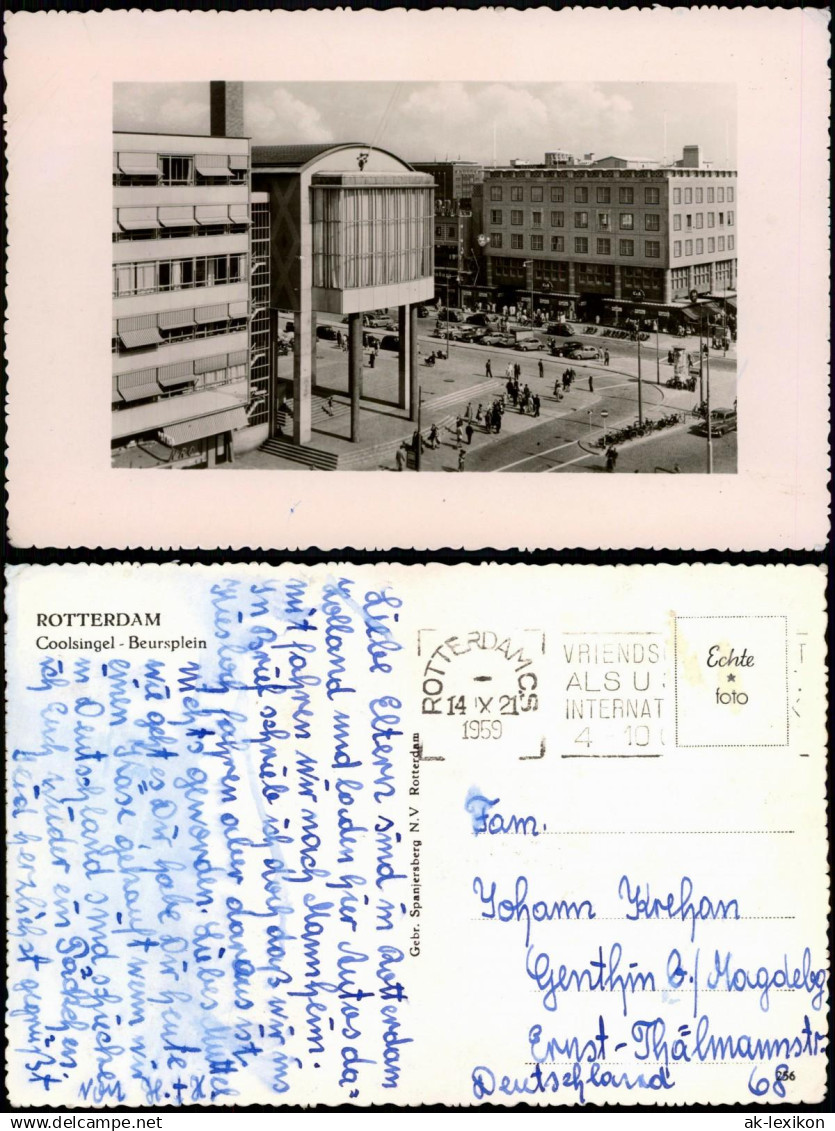 ROTTERDAM
Coolsingel - Beursplein
Liebe Eltern sind in Rotterdam
Holland und laden für Autos da=
mit fahren wir nach Mannheim.
In Brief schrieb ich doch daß wir ins
fahren aber daraus ist
nichts geworden. Liebes Muttel
wie geht es Dir habe Dir heute
einen gekauft wenn wir
in Deutschland sind schicken
ich Euch wieder ein Päckchen
Seid herzlichst gegrüßt
von
H. + H.
Gebr. Spanjersberg N.V Rotterdam
ROTTERDAM CS
14 IX 21
1959
VRIENDS
ALS U
INTERNAT
4 - 10
Echte
*
foto
Fam.
Johann Krehan
Genthin b./Magdebg
Ernst-Thälmannstr
Deutschland 68
256
ak-lexikon.DE
ak-lexikon